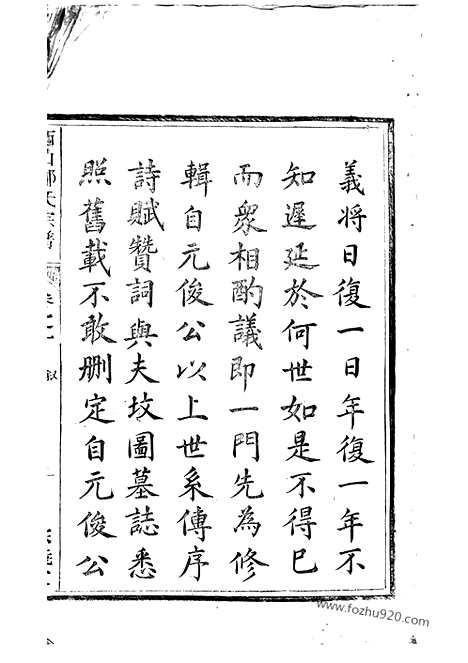 義將日復一日年復一年不
知遲延於何世如是不得已
而衆相酌議即一門先為修
輯自元俊公以上世系傳序
詩賦贊詞與夫坟圖墓誌悉
照舊載不敢删定自元俊公
氏宗譜
www.fozhu920.com